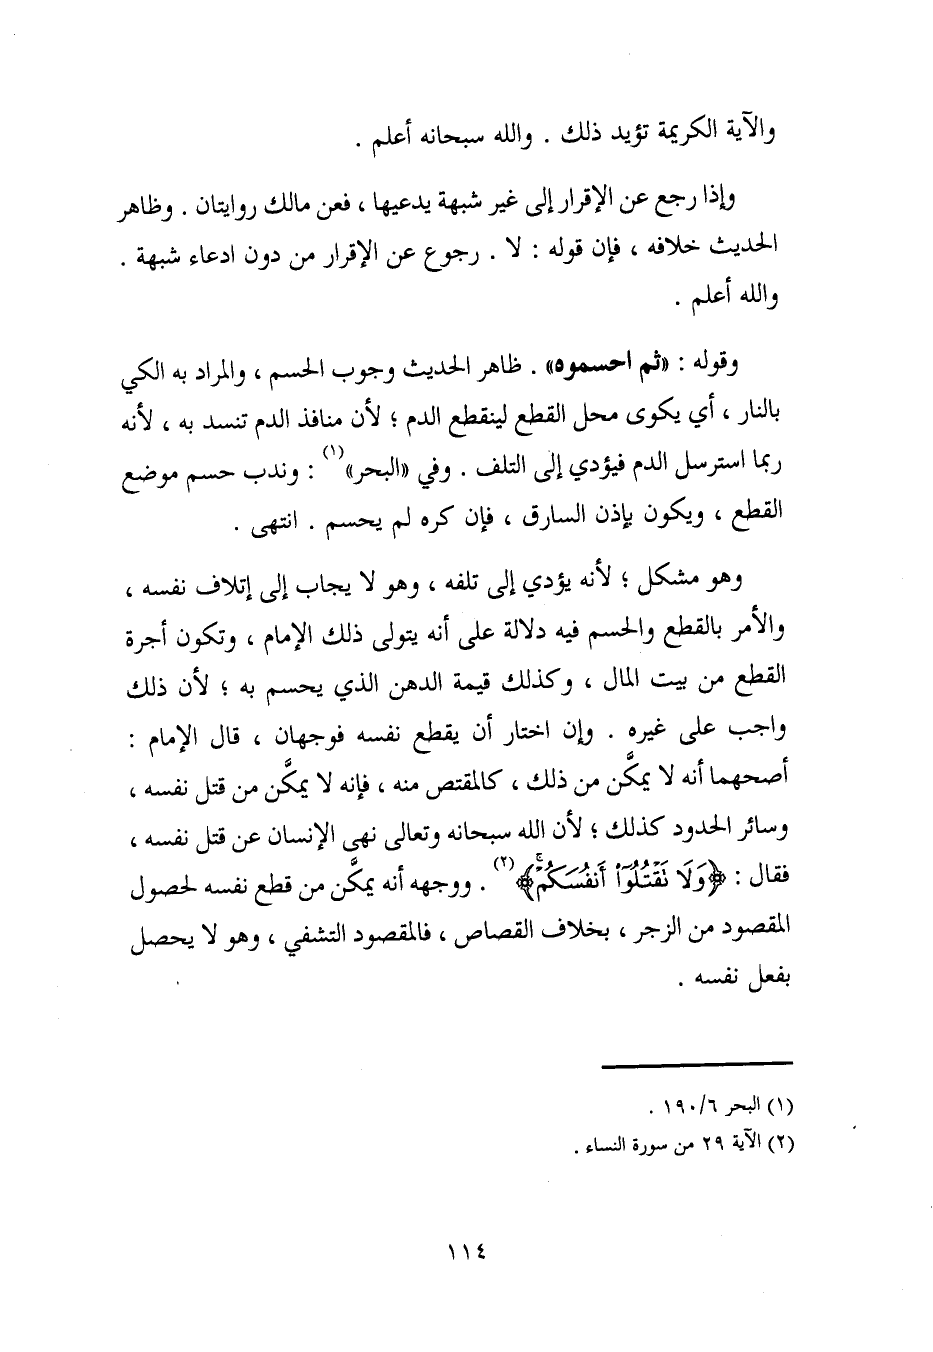 والآية الكريمة تؤيد ذلك . والله سبحانه أعلم .
وإذا رجع عن الإقرار إلى غير شبهة يدعيها ، فعن مالك روايتان . وظاهر
الحديث خلافه ، فإن قوله : لا . رجوع عن الإقرار من دون ادعاء شبهة .
والله أعلم .
وقوله : «ثم احسموه» . ظاهر الحديث وجوب الحسم ، والمراد به الكي
بالنار ، أي يكوى محل القطع لينقطع الدم ؛ لأن منافذ الدم تنسد به ، لأنه
ربما استرسل الدم فيؤدي إلى التلف . وفي «البحر»(١) : وندب حسم موضع
القطع ، ويكون بإذن السارق ، فإن كره لم يحسم . انتهى .
وهو مشكل ؛ لأنه يؤدي إلى تلفه ، وهو لا يجاب إلى إتلاف نفسه ،
والأمر بالقطع والحسم فيه دلالة على أنه يتولى ذلك الإمام ، وتكون أجرة
القطع من بيت المال ، وكذلك قيمة الدهن الذي يحسم به ؛ لأن ذلك
واجب على غيره . وإن اختار أن يقطع نفسه فوجهان ، قال الإمام :
أصحهما أنه لا يمكَّن من ذلك ، كالمقتص منه ، فإنه لا يمكَّن من قتل نفسه ،
وسائر الحدود كذلك ؛ لأن الله سبحانه وتعالى نهى الإنسان عن قتل نفسه ،
فقال : ﴿وَلَا نَقْتُلُوٓا۟ أَنفُسَكُمْ ۚ﴾(٢) . ووجهه أنه يمكَّن من قطع نفسه لحصول
المقصود من الزجر ، بخلاف القصاص ، فالمقصود التشفي ، وهو لا يحصل
بفعل نفسه .
(١) البحر ١٩٠/٦ .
(٢) الآية ٢٩ من سورة النساء .
١١٤